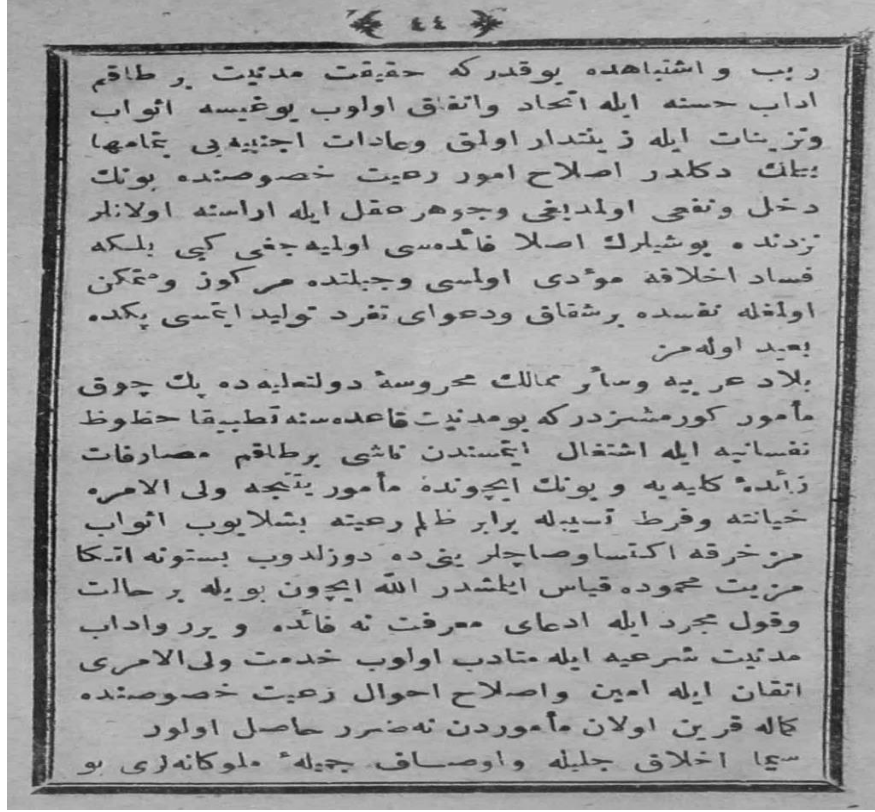 ٤٤
ريب و اشتباهده يوقدركه حقيقت مدنيت بر طاقم
اداب حسنه ايله اتحاد واتفاق اولوب يوغيسه اثواب
وتزينات ايله زينتدار اولمق وعادات اجنبيه‌يى بتمامها
دكلدر اصلاح امور رعيت خصوصنده بونك
دخل ونفعى اولمديغى وجوهر عقل ايله اراسته اولانلر
نزدنده بوشيلرك اصلا فائده‌سى اوليه‌جغى كبى بلكه
فساد اخلاقه مؤدى اولمسى وجبلتده مركوز ومتمكن
اولمغله نفسده برشقاق ودعواى تفرد توليد ايتمسى پكده
بعيد اوله‌مز
بلاد عربيه وسائر ممالك محروسهٔ دولتعليه‌ده پك چوق
مأمور كورمشزدركه بو مدنيت قاعده‌سنه تطبيقا حظوظ
نفسانيه ايله اشتغال ايتمسندن ناشى برطاقم مصارفات
زائدهٔ كليه‌يه و بونك ايچونده مأمور يتنجه ولى الامره
خيانته وفرط تسيبله برابر ظلم رعيته بشلايوب اثواب
مزخرفه اكتسا وصاچلرينى‌ده دوزلدوب بستونه اتكا
مزيت محموده قياس ايلمشدر الله ايچون بويله بر حالت
وقول مجرد ايله ادعاى معرفت نه فائده ويرر واداب
مدنيت شرعيه ايله متادب اولوب خدمت ولى‌الامرى
اتقان ايله امين واصلاح احوال رعيت خصوصنده
كماله قرين اولان مأموردن نه‌ضرر حاصل اولور
سيما اخلاق جليله واوصاف جميلهٔ ملوكانه‌لرى بو